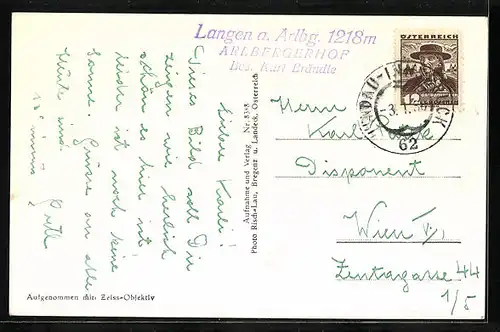 Langen a. Arlbg. 1218m
ARLBERGERHOF
Bes. Karl Brändle
ÖSTERREICH
LINDAU-INNSBRUCK
62
Lieber Karli!
Dieses Bild soll Dir
zeigen wie herrlich
schön es hier ist.
Leider ist noch keine
Sonne. Grüsse an alle
Aufnahme und Verlag Nr. 8358
Photo Risch-Lau, Bregenz u. Landeck, Österreich
Herrn
Karl
Disponent
Wien V/,
Zentagasse 44
1/5
Aufgenommen mit: Zeiss-Objektiv